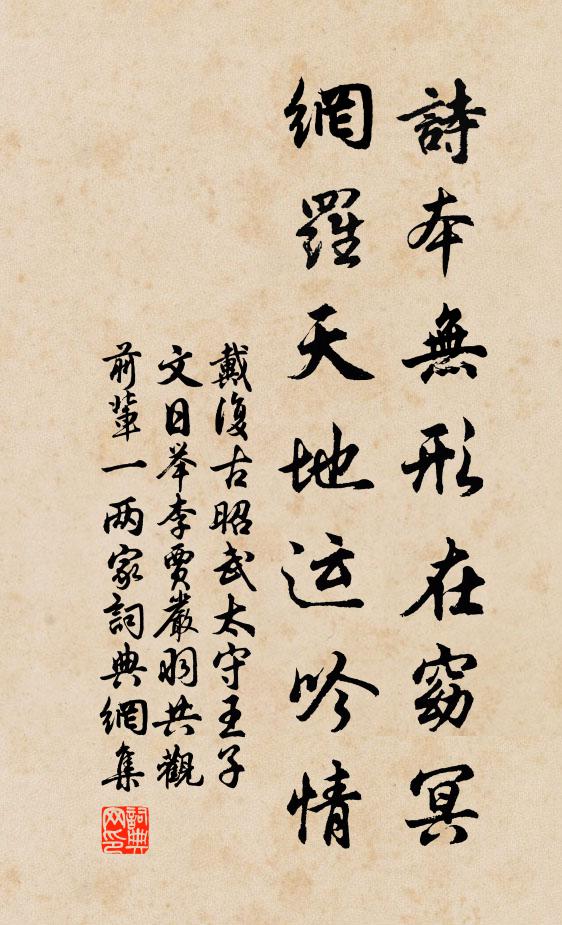 詩本無形在窈冥
網羅天地运吟情
戴復古昭武太守王子
文日举李賈嚴羽共觀
前輩一两家詞典網集
詞典网印